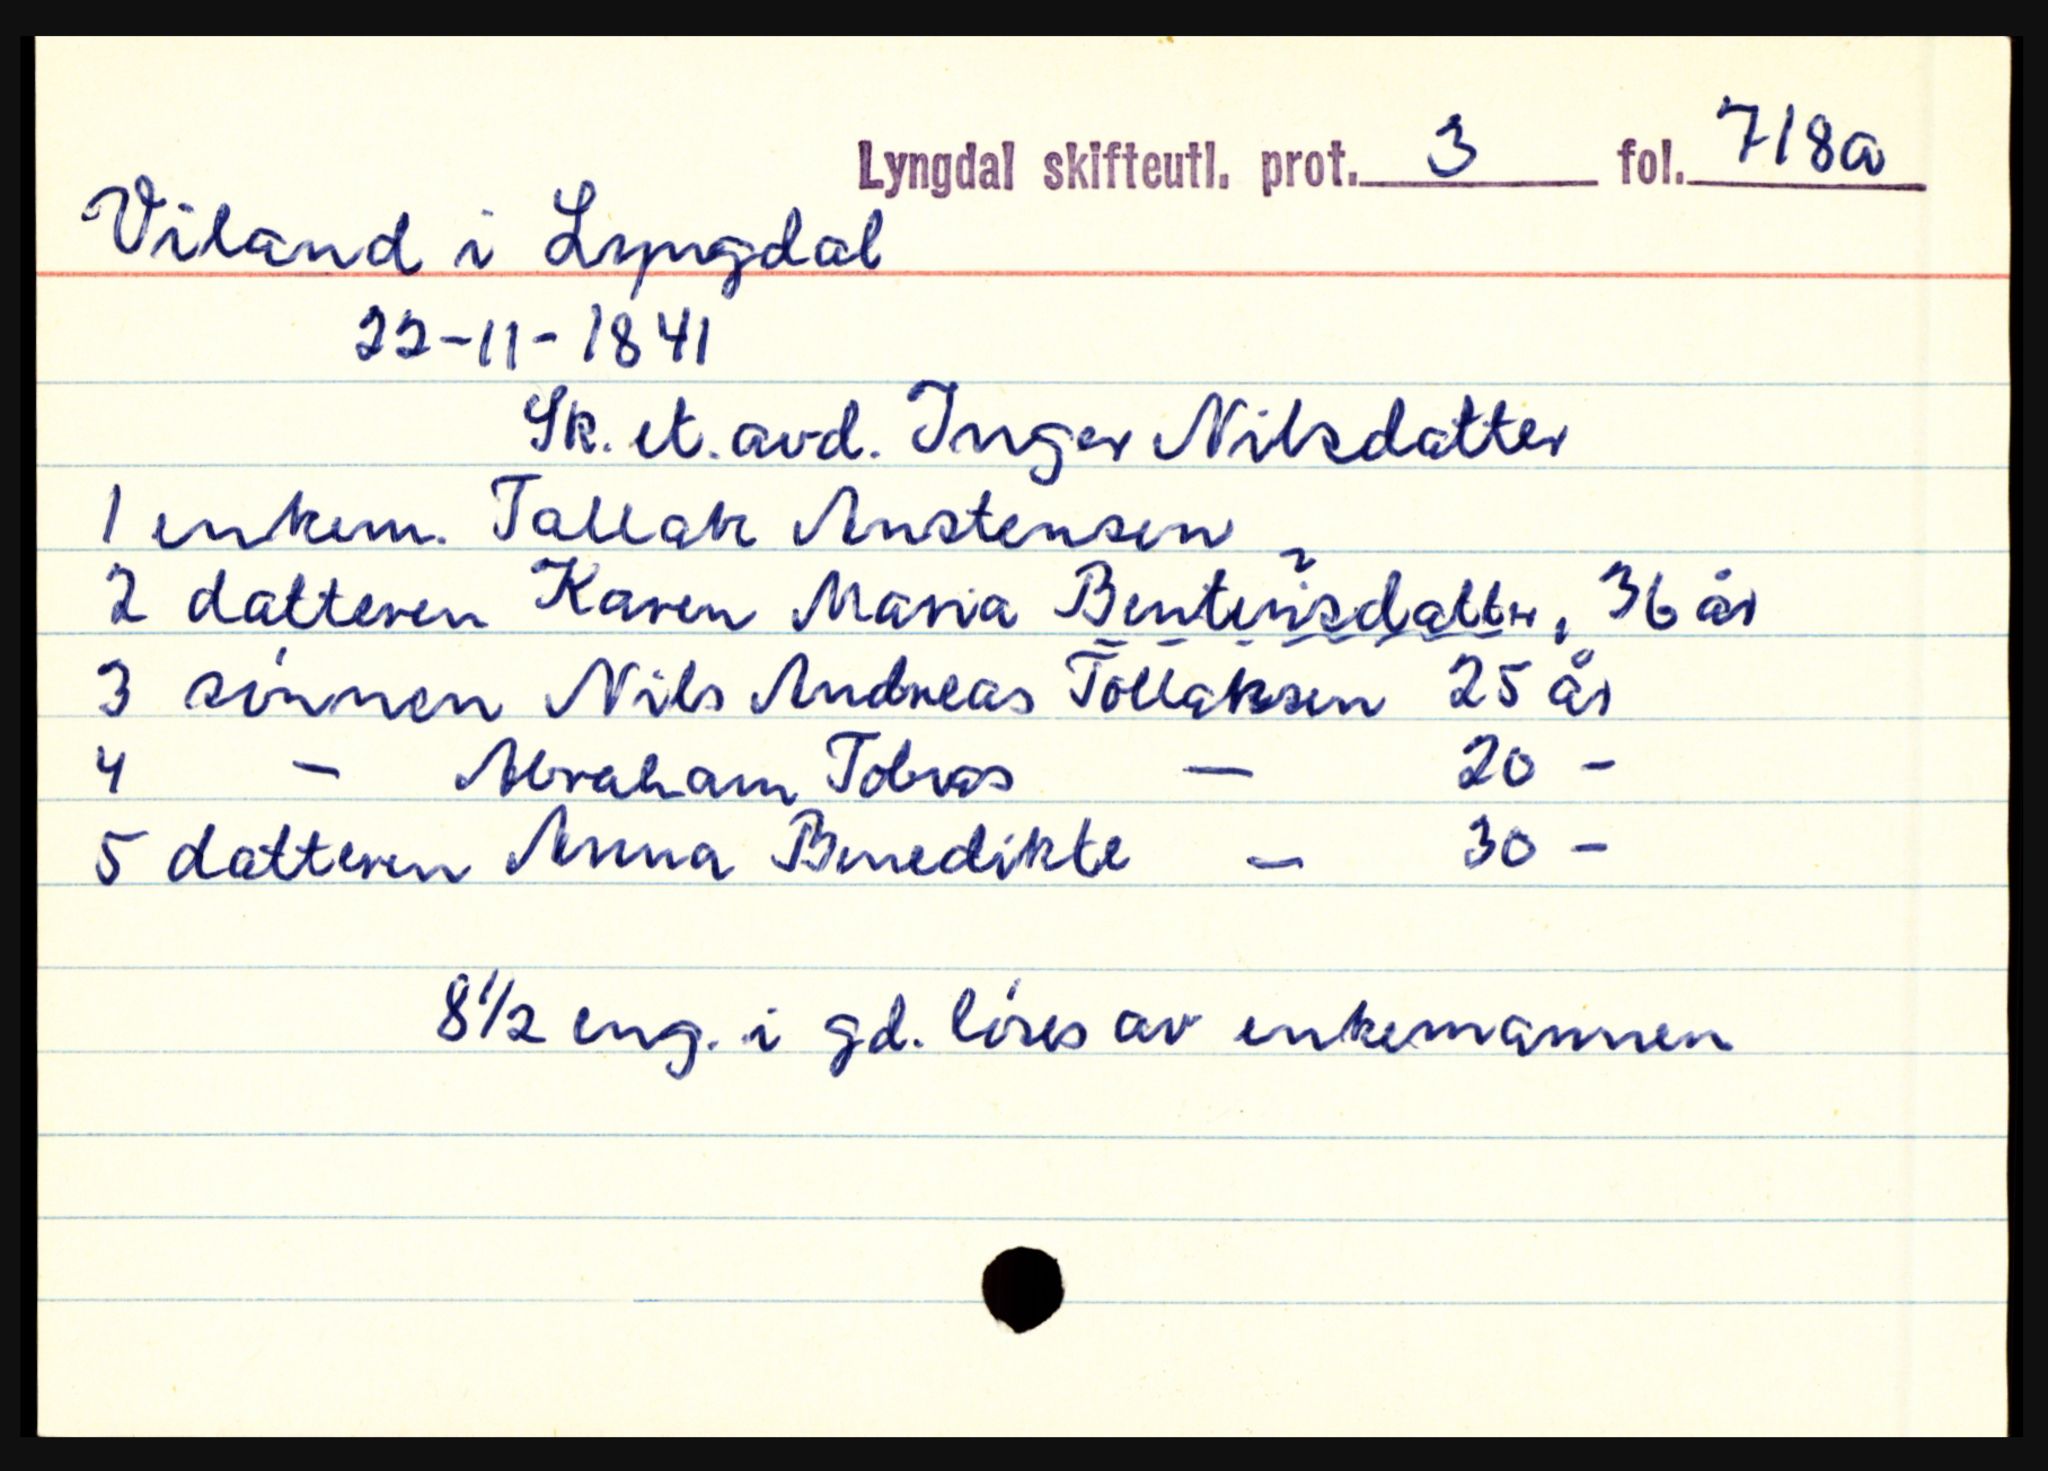 Lyngdal skifteutl. prot. 3 fol. 718a
Viland i Lyngdal
22-11-1841
Sk. et. avd. Inger Nilsdatter
1 enkem. Tallak Anstensen
2 datteren Karen Maria Bentensdatter, 36 år
3 sønnen Nils Andreas Tollaksen 25 år
4 — Abraham Tobias — 20 -
5 datteren Anna Benedikte — 30 -
8½ eng. i gd. löses av enkemannen